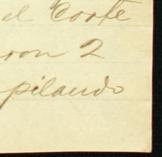 el Corte
ron 2
pilando